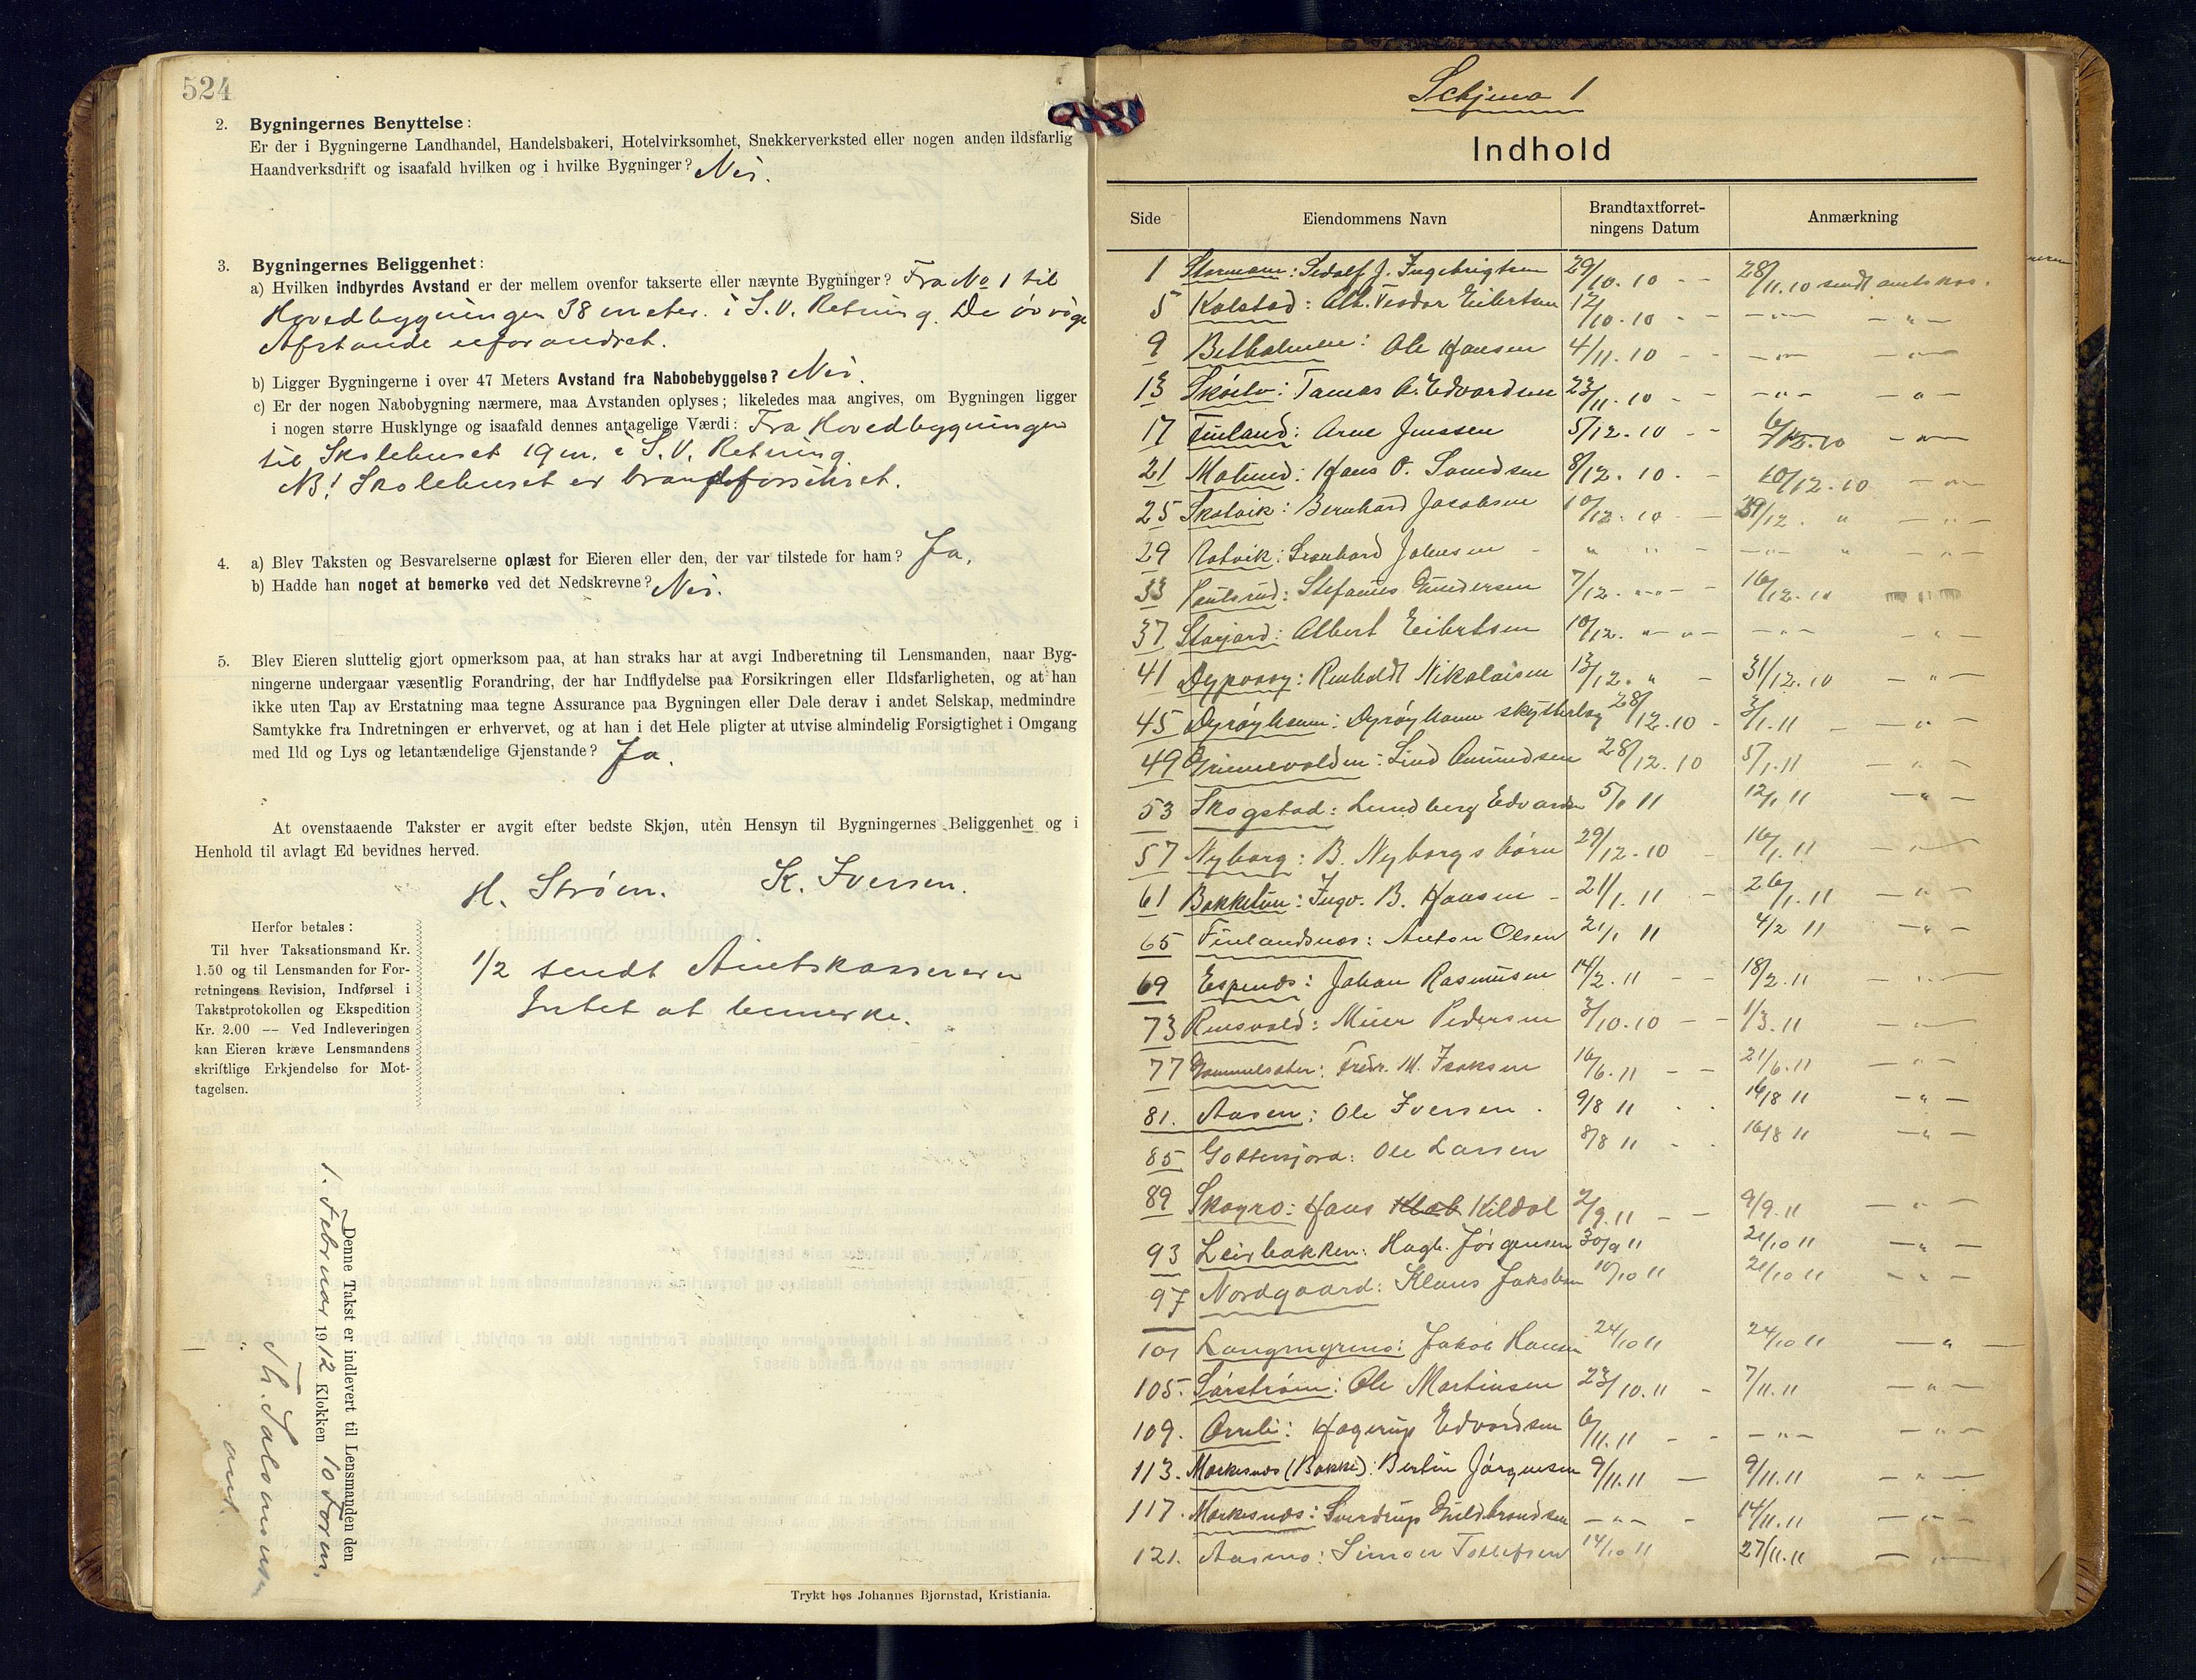 524
2. Bygningernes Benyttelse:
Er der i Bygningerne Landhandel, Handelsbakeri, Hotelvirksomhet, Snekkerverksted eller nogen anden ildsfarlig
Haandverksdrift og isaafald hvilken og i hvilke Bygninger? Nei.
3. Bygningernes Beliggenhet:
a) Hvilken indbyrdes Avstand er der mellem ovenfor takserte eller nævnte Bygninger? Fra No 1 til
Hovedbygningen 38 meter i S.V. Retning. De øvrige
Afstande uforandret.
b) Ligger Bygningerne i over 47 Meters Avstand fra Nabobebyggelse? Nei.
c) Er der nogen Nabobygning nærmere, maa Avstanden oplyses; likeledes maa angives, om Bygningen ligger
i nogen større Husklynge og isaafald dennes antagelige Værdi: Fra Hovedbygningen
til Skolehuset 19 m. i S.V. Retning.
NB! Skolehuset er brandforsikret.
4. a) Blev Taksten og Besvarelserne oplæst for Eieren eller den, der var tilstede for ham? Ja,
b) Hadde han noget at bemerke ved det Nedskrevne? Nei.
5. Blev Eieren sluttelig gjort opmerksom paa, at han straks har at avgi Indberetning til Lensmanden, naar Byg-
ningerne undergaar væsentlig Forandring, der har Indflydelse paa Forsikringen eller Ildsfarligheten, og at han
ikke uten Tap av Erstatning maa tegne Assurance paa Bygningen eller Dele derav i andet Selskap, medmindre
Samtykke fra Indretningen er erhvervet, og at han i det Hele pligter at utvise almindelig Forsigtighet i Omgang
med Ild og Lys og letantændelige Gjenstande? Ja.
At ovenstaaende Takster er avgit efter bedste Skjøn, uten Hensyn til Bygningernes Beliggenhet og i
Henhold til avlagt Ed bevidnes herved.
H. Strøm. K. Iversen.
Herfor betales:
Til hver Taksationsmand Kr.
1.50 og til Lensmanden for For-
retningens Revision, Indførsel i
Takstprotokollen og Ekspedition
Kr. 2.00 — Ved Indleveringen
kan Eieren kræve Lensmandens
skriftlige Erkjendelse for Mot-
tagelsen.
1/2 sendt Amtskassereren
Intet at bemerke.
Denne Takst er indlevert til Lensmanden den
1. Februar 1912 Klokken 10 Form.
Th. Salomonsen
Trykt hos Johannes Bjørnstad, Kristiania.
Schjema 1
Indhold
Side Eiendommens Navn Brandtaxtforret-ningens Datum Anmærkning
1 Stormoen: J. Ingebrigtsen 29/10.10 - - 28/11.10 sendt amtskas.
5 Kolstad: Alb. Teodor Eibertsen 12/10.10 - - —"— —"—
9 Ole Hansen 4/11.10 - - —"— —"—
13 Tomas A. Edvardsen 23/11.10 - - —"— —"—
17 Finland: Arne Jenssen 5/12.10 - - 6/12.10 —"—
21 Molund: Hans O. 8/12.10 - 10/12.10 —"—
25 Skatvik: Bernhard Jacobsen 10/12.10 — 29/12. " —"—
29 Leonhard Johnsen - " " - —"— " —"—
33 Stefanus Gundersen 7/12. "— 16/12.10
37 Storjord: Albert Eibertsen 10/12. "—"— —"— —"—
41 Reinholdt Nikolaisen 13/12. " - 31/12.10 —"—
45 Dyrøyhavn: Dyrøyhavn skytterlag 28/12.10 - 3/1.11 —"—
49 Amundsen 28/12.10 5/1.11 —"—
53 Skogstad: Lundberg Edvardsen 5/1 11 12/1 11 —"—
57 Nyborg: B. Nyborgs børn 29/12.10 - 16/1.11 —"—
61 Bakketun: Ingv. B. Hansen - 21/1.11 - 26/1.11 —"—
65 Finlandsnes: Anton Olsen 21/1 11 4/2 11 —"—
69 Espenes: Johan Rasmusen 14/2.11 - - 18/2.11 —"—
73 Meier Pedersen 3/10.10 - - 1/3.11 —"—
77 Gammelsæter: Fredr. M. Isaksen 16/6.11 - - 21/6.11 —"—
81. Aasen: Ole Iversen. 9/8 11 14/8 11 —"—
85 Ole Larsen 8/8 11 16/8 11 —"—
89 Skogro: Hans Kildal 2/9.11 - - 9/9.11 —"—
93 Leirbakken: Hagb. Jørgensen 30/9 11 21/10 11 —"—
97 Nordgaard: Klaus Jakobsen 10/10 11 21/10 11 —"—
101 Jakob Hansen 24/10 11 24/10 11 —"—
105. Sørstrøm: Ole Martinsen 23/10.11 - 7/11.11 —"—
109. Hagerup Edvardsen 6/11.11 - - —"— —"—
113. Moekesnes (Bakke): Bertin Jørgensen 9/11.11 — 9/11.11 —"—
117. Moekesnes: Sverdrup Guldbrandsen —"— - 14/11.11 —"—
121. Simon Tollefsen 14/10 11 27/11.11 —"—